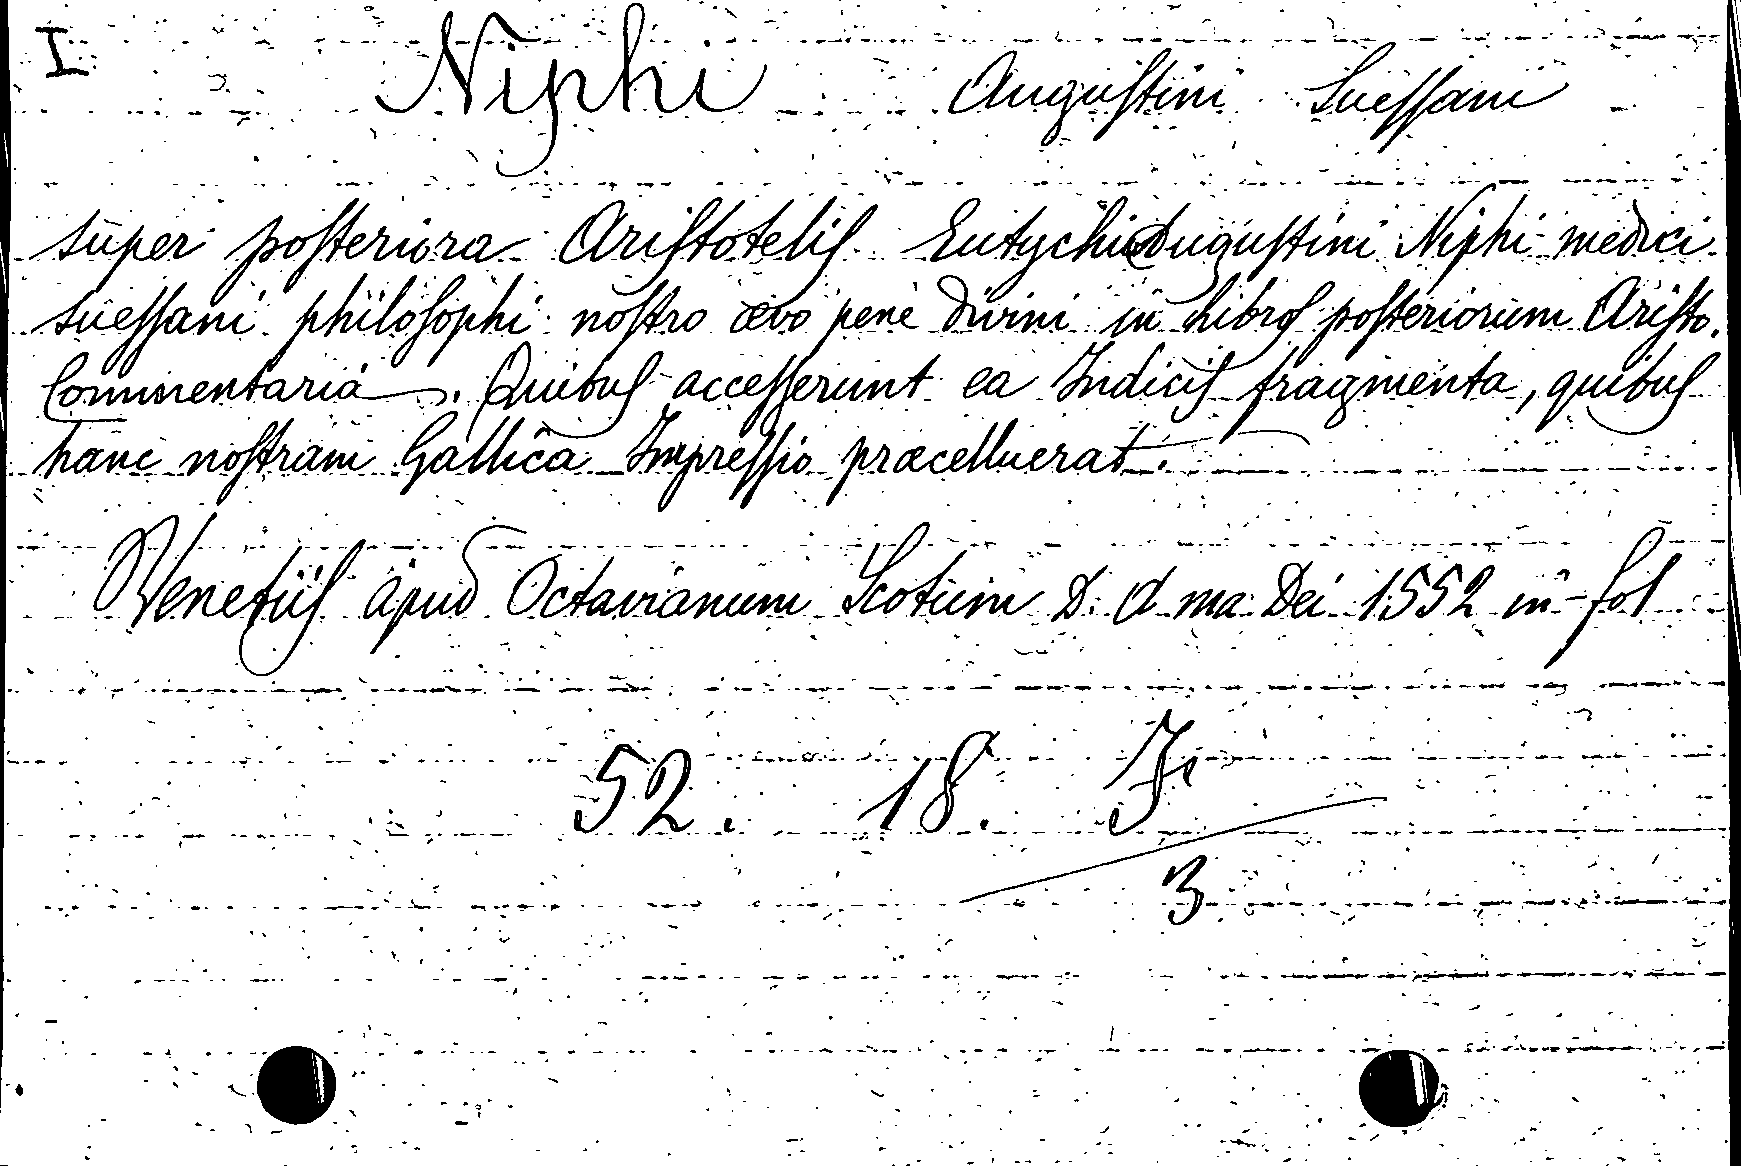 I Niphi Augustini Suessani
super posteriora Aristotelis Eutychi Augustini Niphi medici
suessani philosophi nostro ævo penè divini in libros posteriorum Aristo.
Commentaria. Quibus accesserunt ea Indicis fragmenta, quibus
hanc nostram Gallica Impressio præcelluerat.
Venetiis apud Octavianum Scotum D. d ma Dei 1552 in-fol
52. 18. F
3